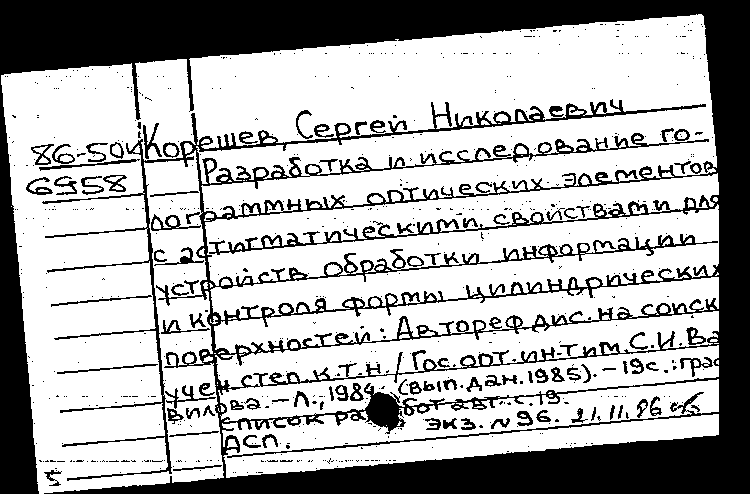 86-504 Корешев, Сергей Николаевич
6958 Разработка и исследование го-
лограммных оптических элементов
с астигматическими свойствами для
устройств обработки информации
и контроля формы цилиндрических
поверхностей: Автореф. дис. на соиск
учен. степ. к.т.н. / Гос. опт. ин-т им. С.И. Ва
вилова. - Л., 1984. (вып. дан. 1985). - 19 с.: граф
список работ авт.: с. 19.
ДСП. экз. №96. 21.11.86
5